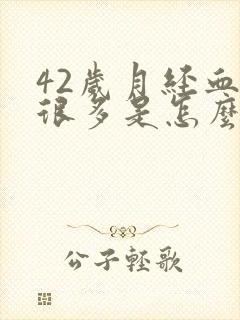 42歲月經血
很多是怎麼
公子輕歌